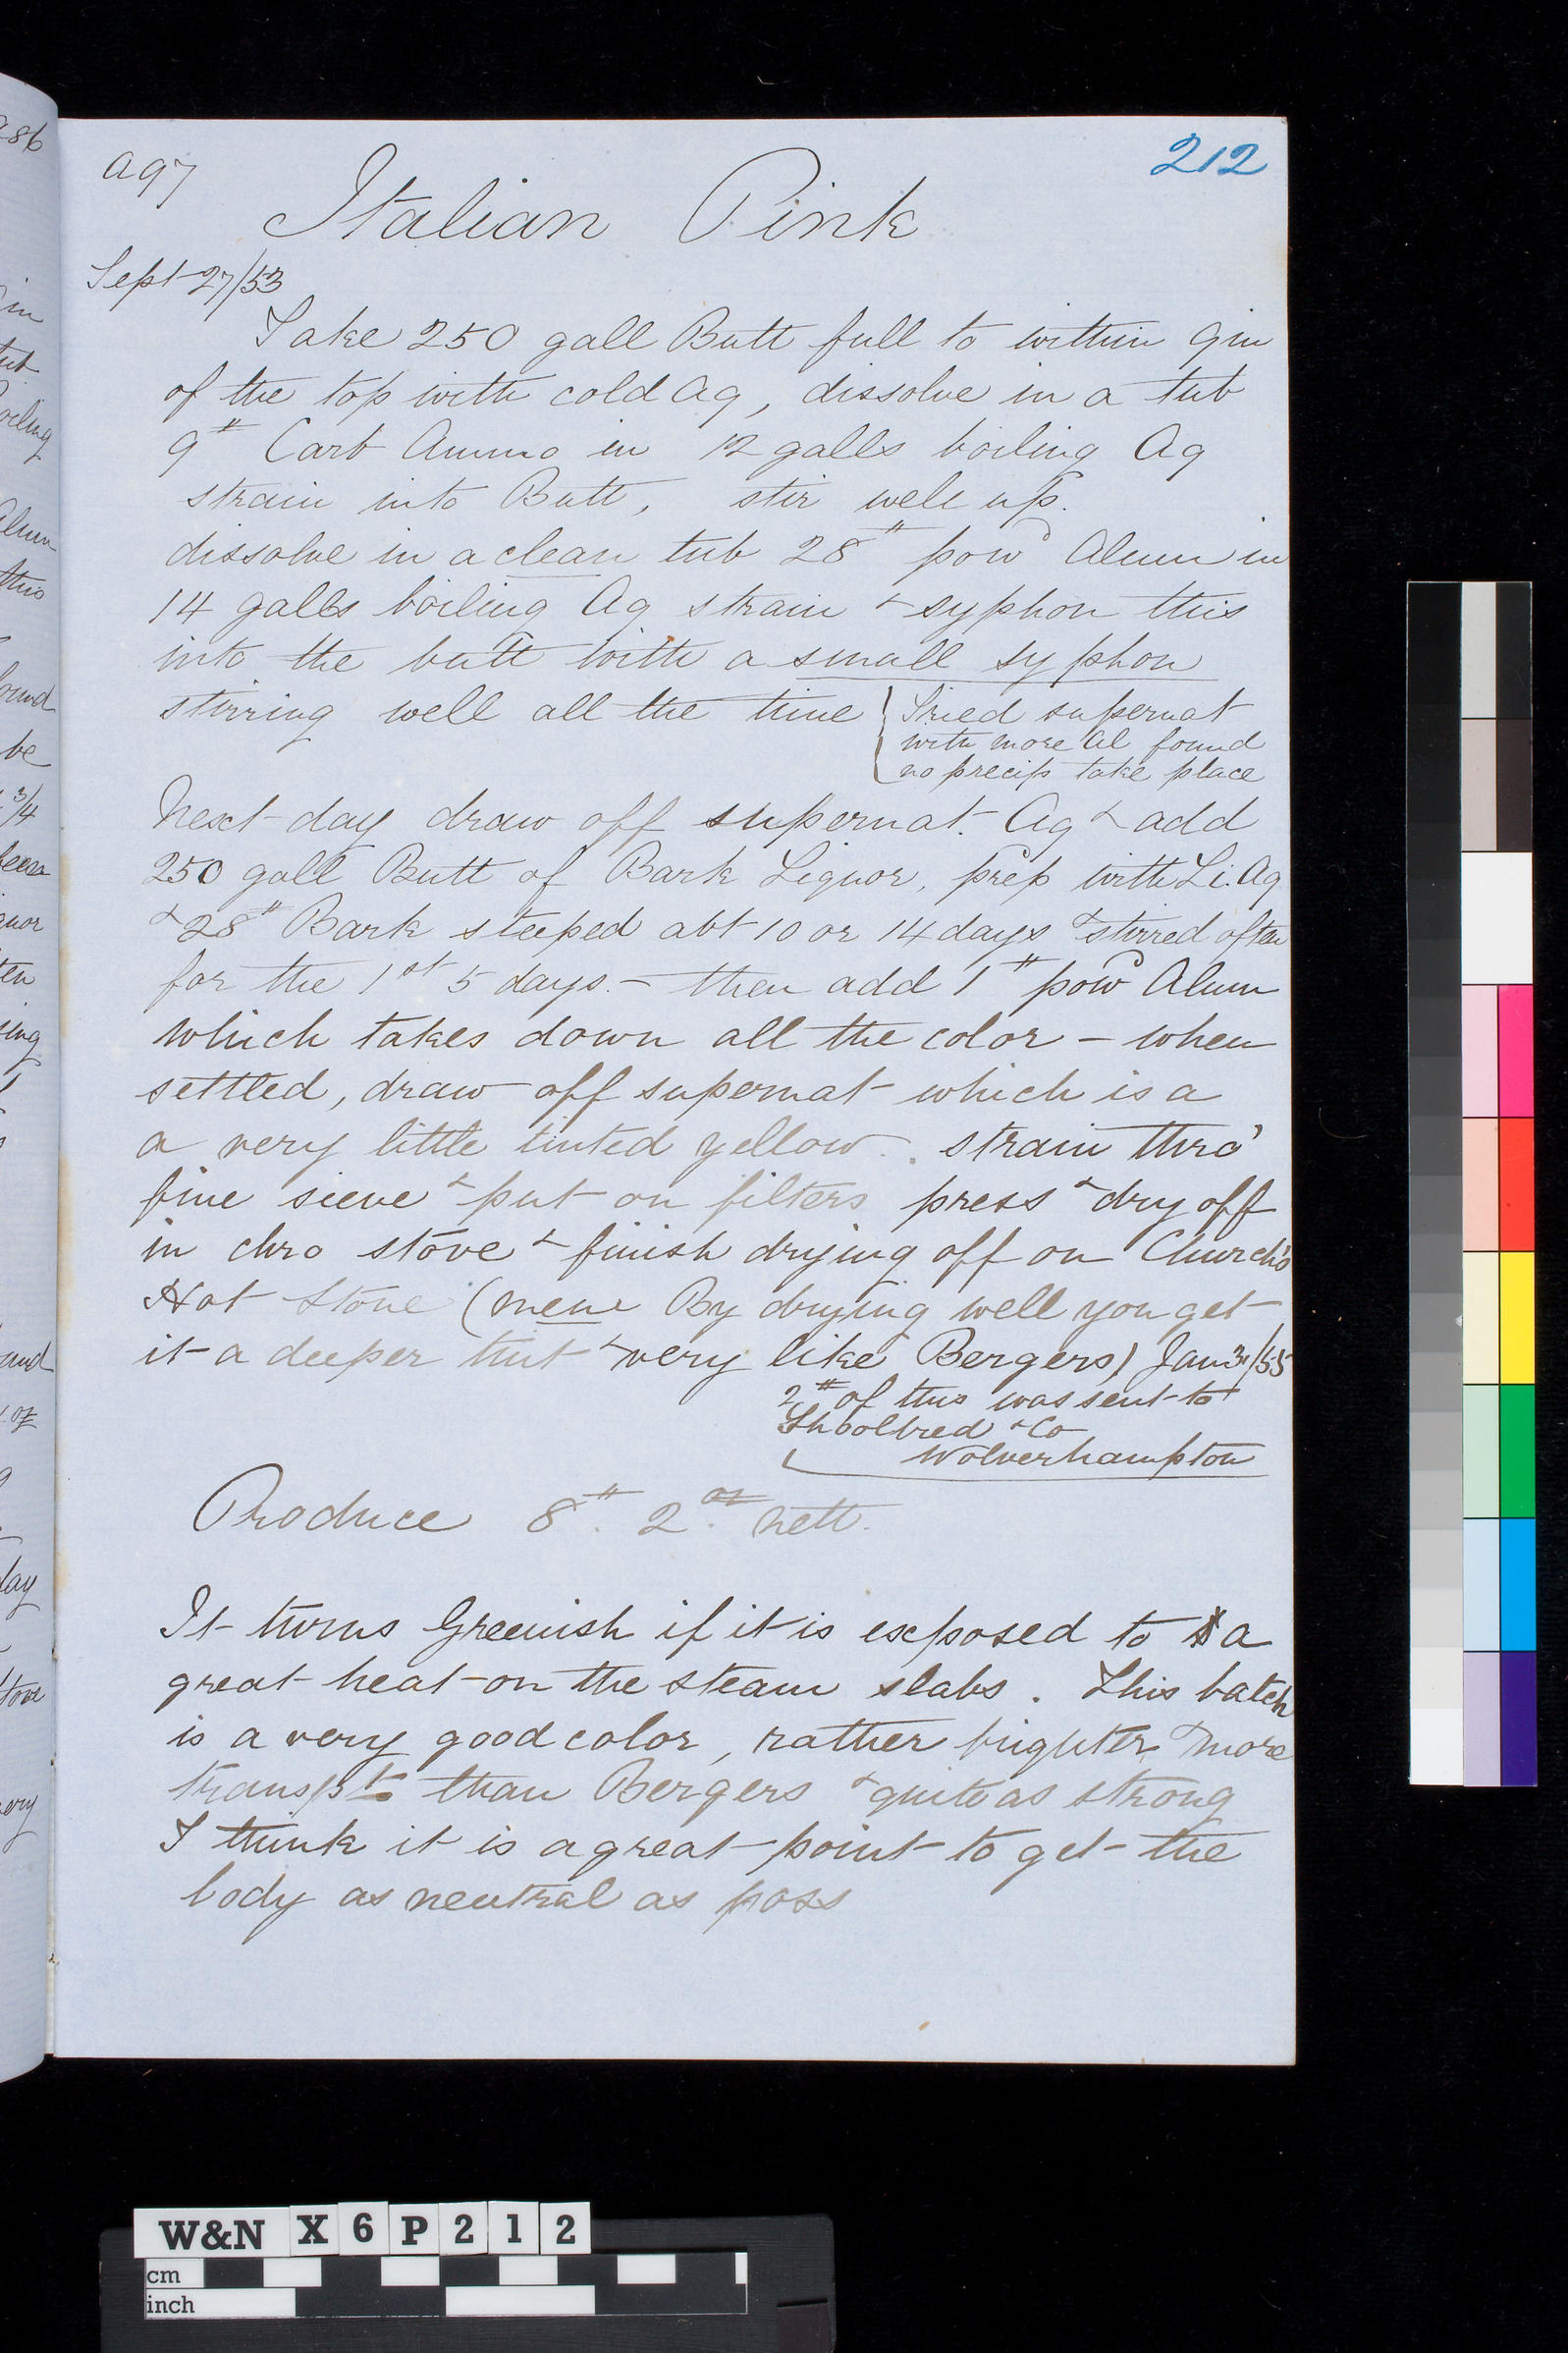 286
in
tub
boiling
Alum
this
found
be
3/4
been
quor
ten
sing
and
oz
day
Stove
very
a97
212
Italian Pink
Sept 27/53
Take 250 gall Butt full to within 9 in
of the top with cold Aq, dissolve in a tub
9 # Carb Ammo in 12 galls boiling Aq
strain into Butt, stir well up.
dissolve in a clean tub 28 # powd Alum in
14 galls boiling Aq strain & syphon this
into the butt with a small syphon
stirring well all the time { Tried supernat
with more Al found
no precip take place
Next day draw off supernat. Aq & add
250 gall Butt of Bark Liquor, prep with Li. Aq
& 28 # Bark steeped abt 10 or 14 days & stirred often
for the 1st 5 days. – then add 1 # powd Alum
which takes down all the color – when
settled, draw off supernat which is a
a very little tinted yellow . . strain thro'
fine sieve & put on filters press & dry off
in chro stove & finish drying off on Church's
Hot Stone (mem By drying well you get
it a deeper tint & very like Bergers) Jan 31/55
2 # of this was sent to
Shoolbred & Co
Wolverhampton
Produce 8 #. 2 oz. nett.
It turns Greenish if it is exposed to a
great heat on the steam slabs. This batch
is a very good color, rather brighter & more
transpt than Bergers & quite as strong
I think it is a great point to get the
body as neutral as poss
W&N X 6 P 2 1 2
cm
inch